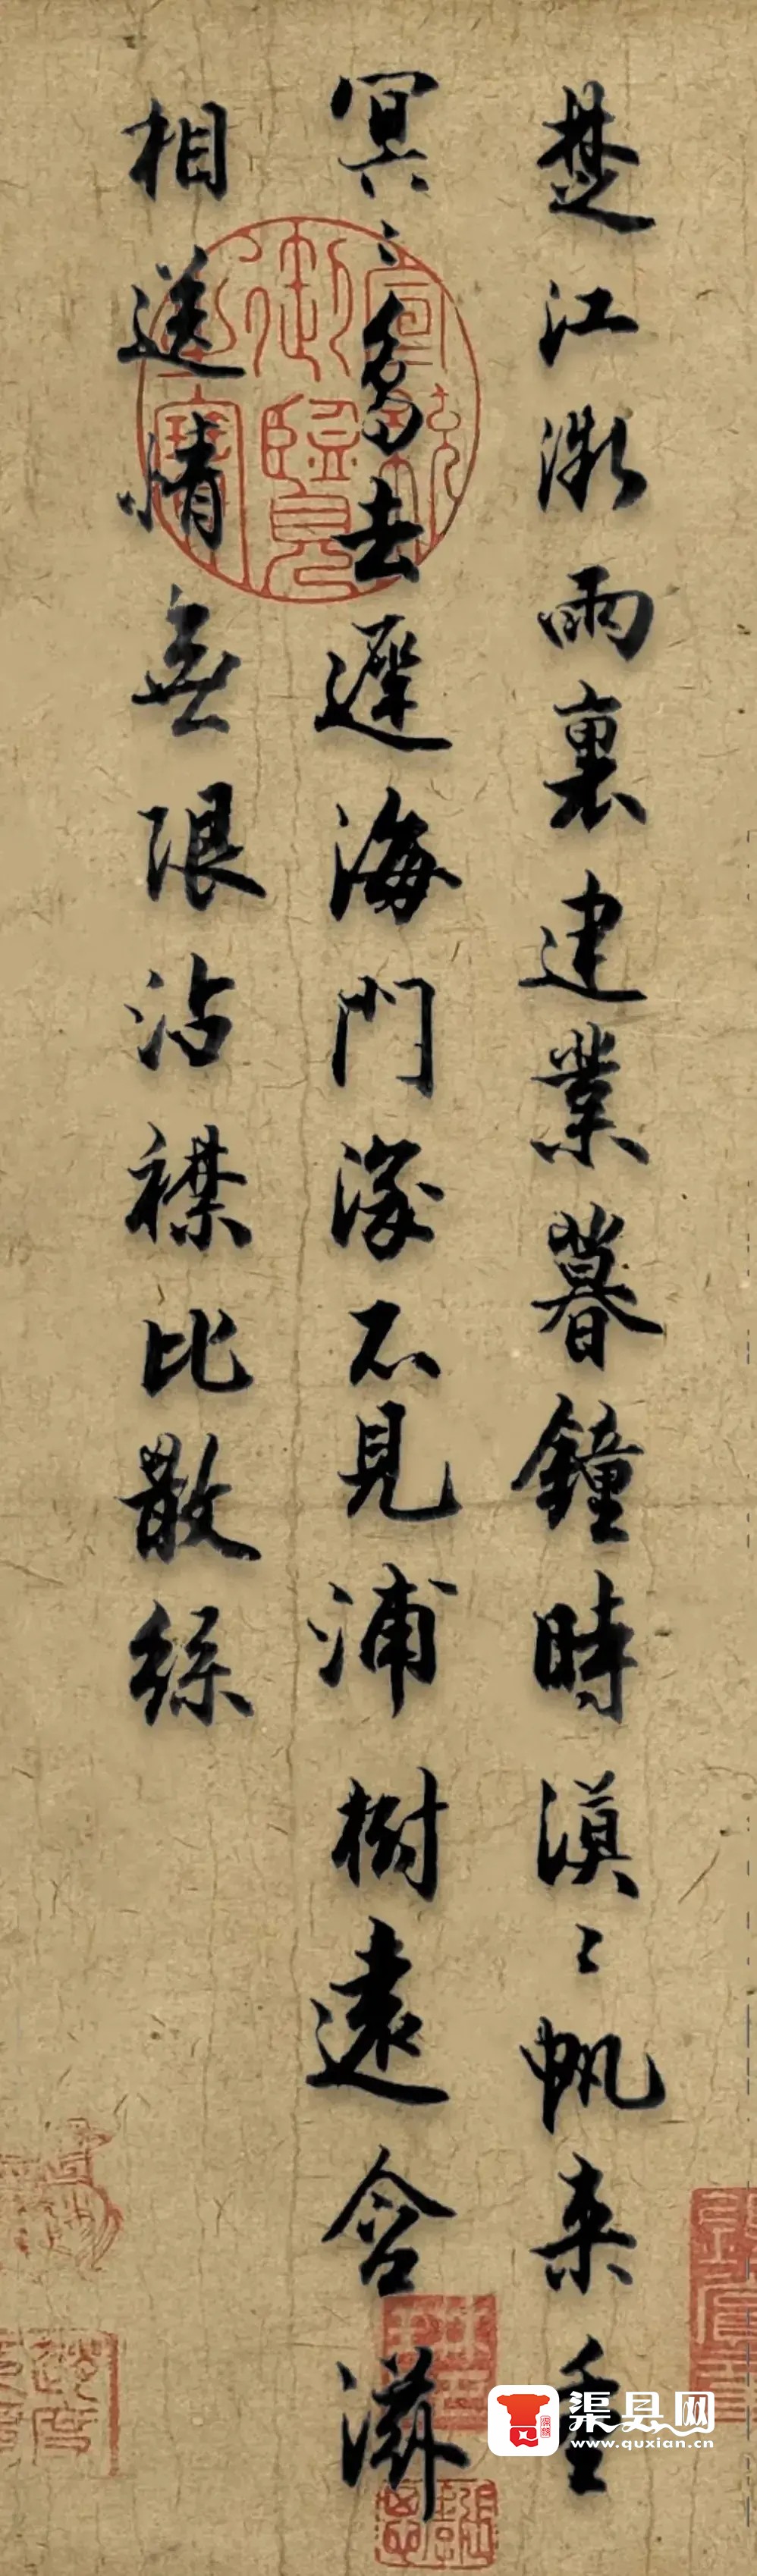 楚江微雨裏建業暮鐘時漠〻帆来重
冥〻鳥去遲海門深不見浦樹遠含滋
相送情無限沾襟比散絲
宣統御覽之寶
渠县网
www.quxian.cn